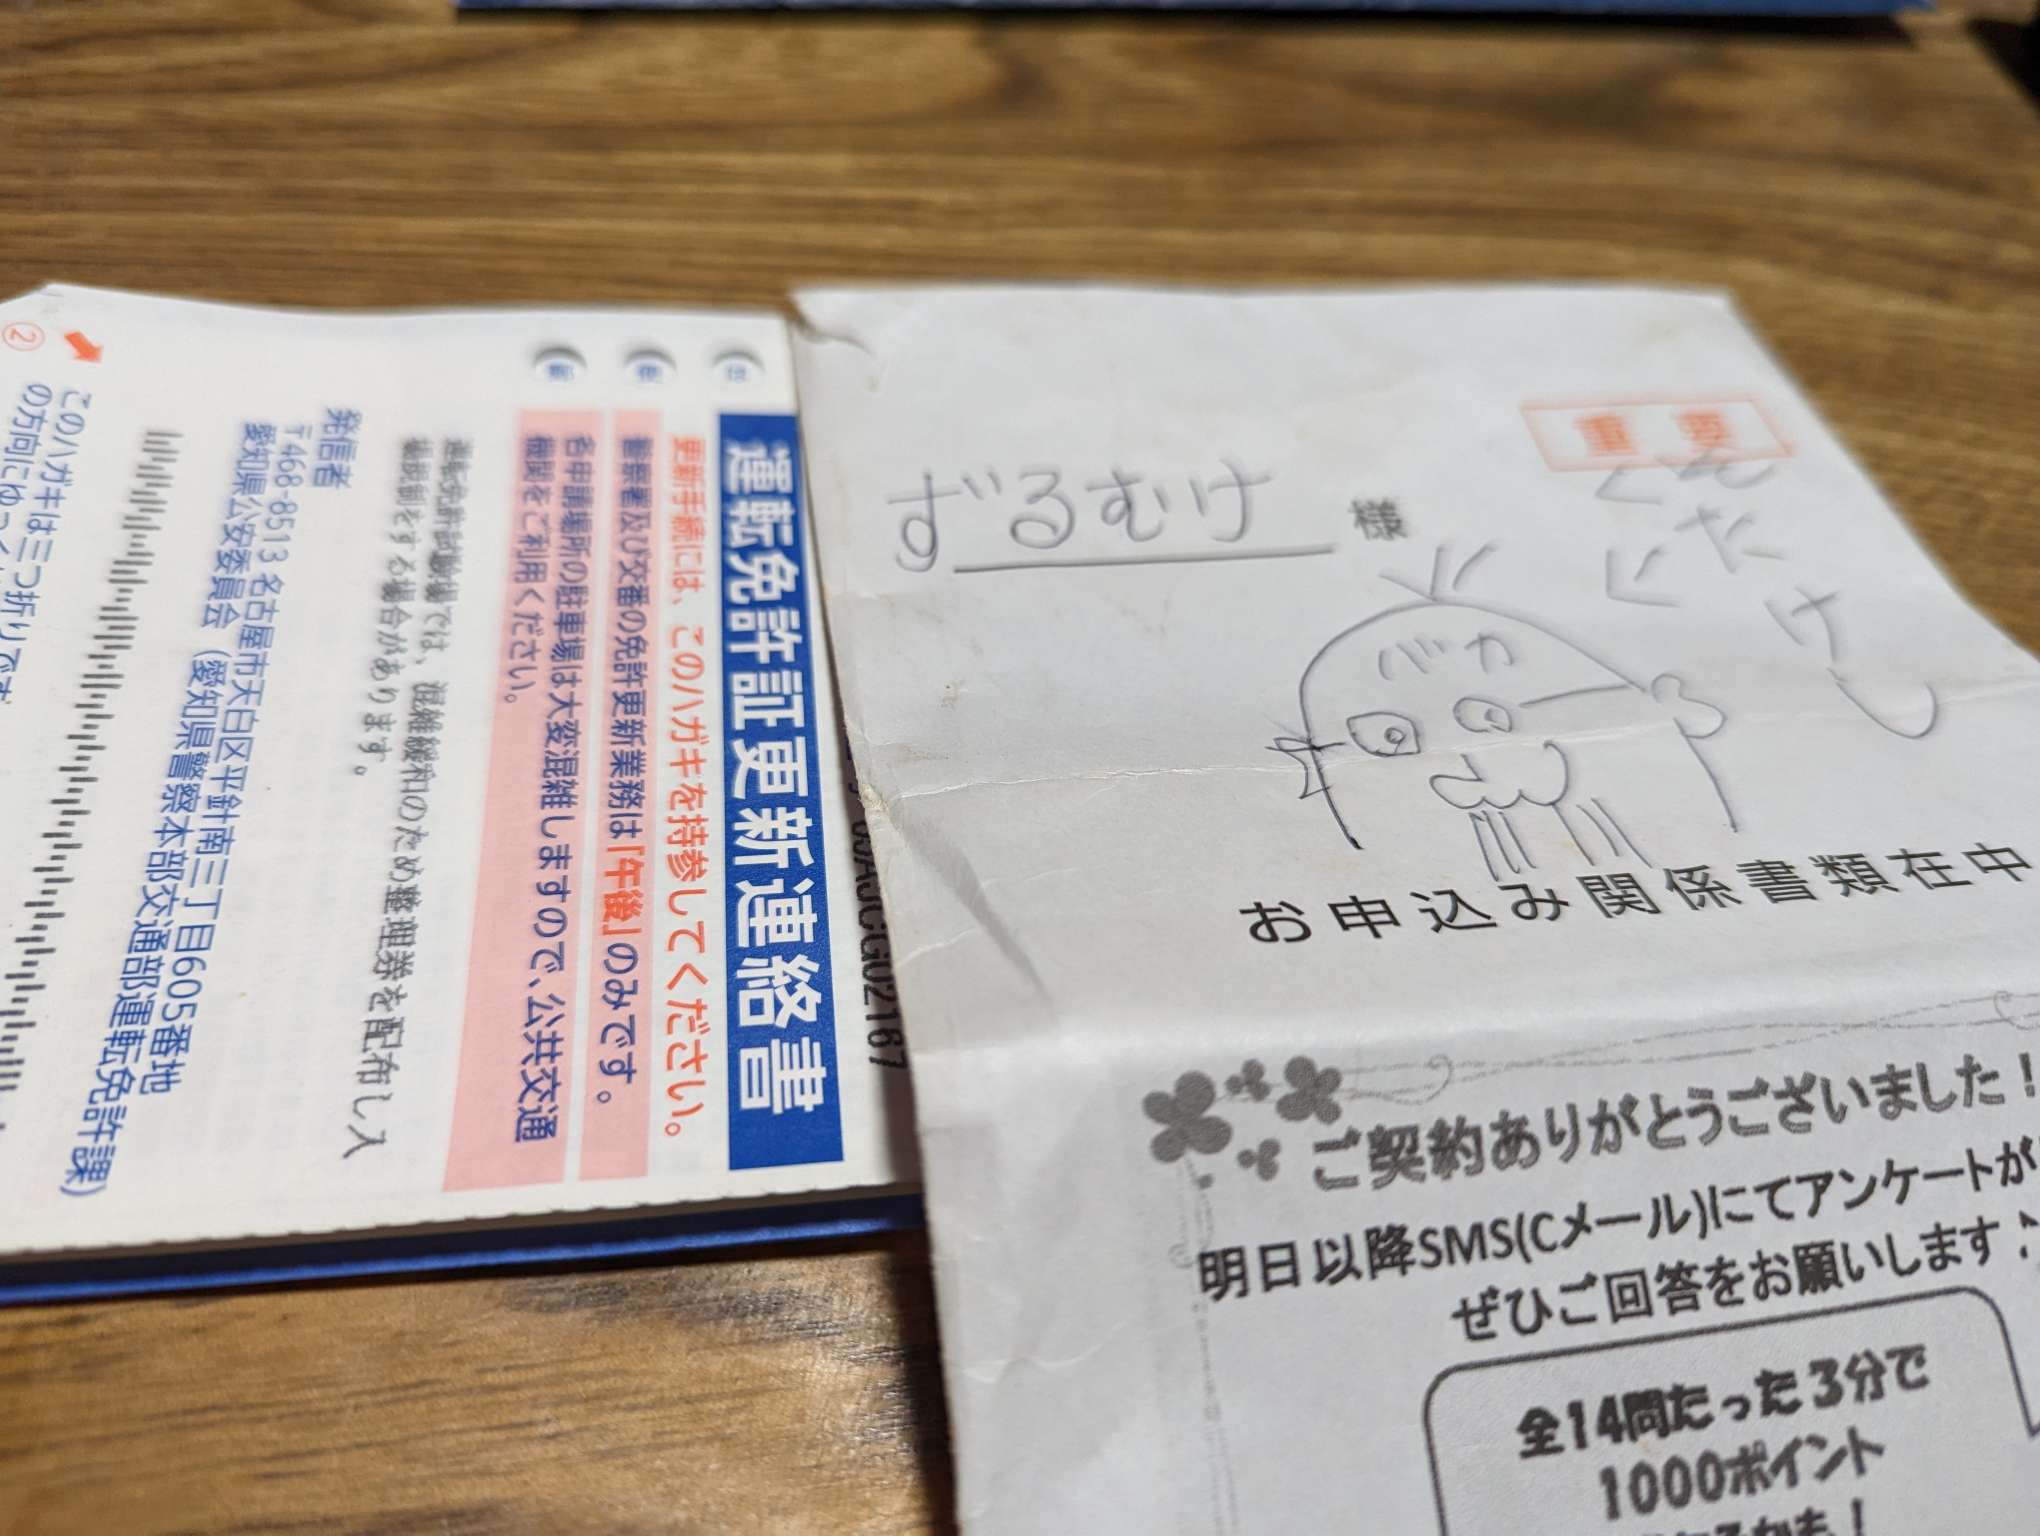 運転免許証更新連絡書
更新手続には、このハガキを持参してください。
警察署及び交番の免許更新業務は「午後」のみです。
各申請場所の駐車場は大変混雑しますので、公共交通
機関をご利用ください。
運転免許試験場では、混雑緩和のため整理券を配布し入
場規制をする場合があります。
発信者
〒468-8513 名古屋市天白区平針南三丁目605番地
愛知県公安委員会（愛知県警察本部交通部運転免許課）
このハガキは三つ折りです
②
ずるむけ 様
バカ
お申込み関係書類在中
ご契約ありがとうございました！
明日以降SMS(Cメール)にてアンケートが
ぜひご回答をお願いします♪
全14問たった3分で
1000ポイント